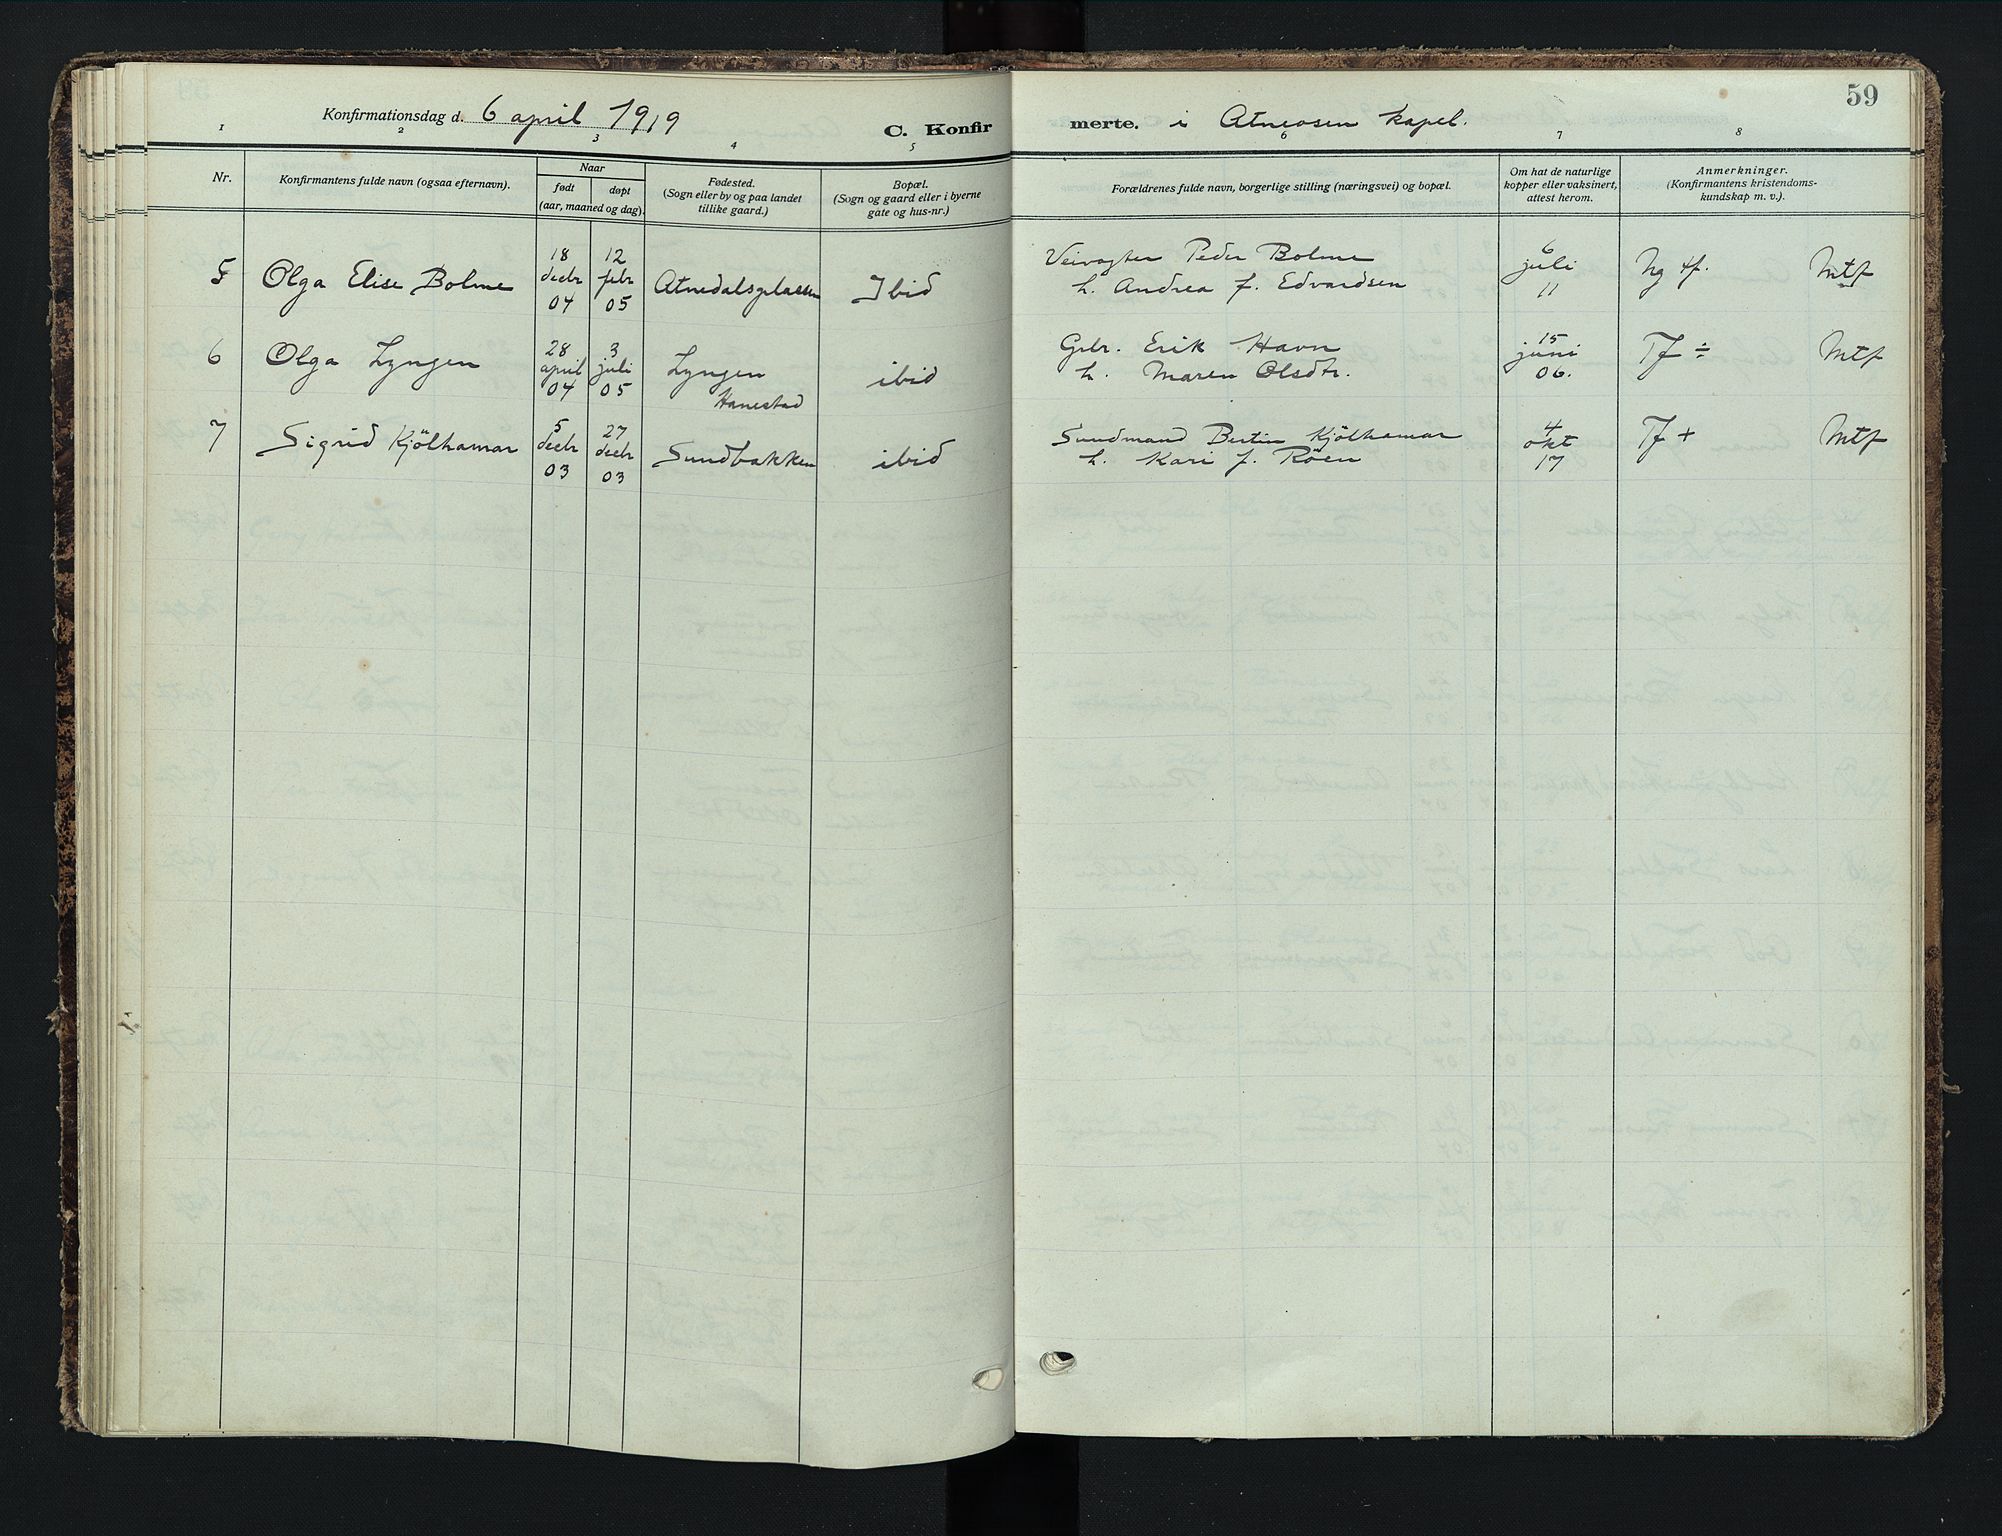 59
Konfirmationsdag d. 6 april 1919
C. Konfirmerte. i Atneosen kapel.
1 2 3 4 5 6 7 8
Nr.
Konfirmantens fulde navn (ogsaa efternavn).
Naar
født
døpt
(aar, maaned og dag).
Fødested.
(Sogn eller by og paa landet
tillike gaard.)
Bopæl.
(Sogn og gaard eller i byerne
gate og hus-nr.)
Forældrenes fulde navn, borgerlige stilling (næringsvei) og bopæl.
Om hat de naturlige
kopper eller vaksinert,
attest herom.
Anmerkninger.
(Konfirmantens kristendoms-
kundskap m. v.).
5 Olga Elise Bolme
18 decbr 04
12 febr 05
Atnedalsplassen
Ibid
Veivogter Peder Bolme
h. Andrea f. Edvardsen
6 juli 11
Ng +.
Mtf
6 Olga Lyngen
28 april 04
3 juli 05
Lyngen
Hanestad
ibid
Gbr. Erik Havn
h. Maren Olsdtr.
15 juni 06.
Tf ÷
Mtf
7 Sigrid Kjölhamar
5 decbr 03
27 decbr 03
Sundbakken
ibid
Sundmand Bertin Kjölhamar
h. Kari f. Röen
4 okt 17
Tf +
Mtf